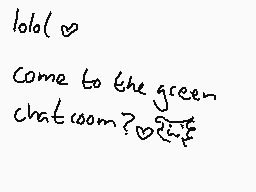 lolol ♡
come to the green
chatroom? ♡